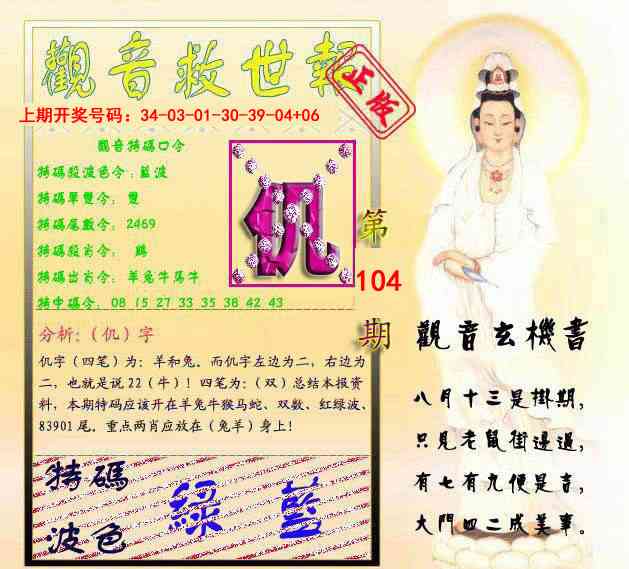 觀音救世報
正版
上期开奖号码：34-03-01-30-39-04+06
觀音特碼口令
特碼殺波色令：藍波
特碼單雙令：雙
特碼尾數令：2469
特碼殺肖令：鷄
特碼出肖令：羊兔牛馬牛
特中碼令：08 15 27 33 35 38 42 43
仉
第
104
期
分析：（仉）字
仉字（四笔）为：羊和兔。而仉字左边为二，右边为
二，也就是说22（牛）！四笔为：（双）总结本报资
料，本期特码应该开在羊兔牛猴马蛇、双数、红绿波、
83901尾。重点两肖应放在（兔羊）身上！
特碼
波色
綠 藍
觀音玄機書
八月十三是掛期，
只見老鼠街邊過，
有七有九便是吉，
大門四二成美事。